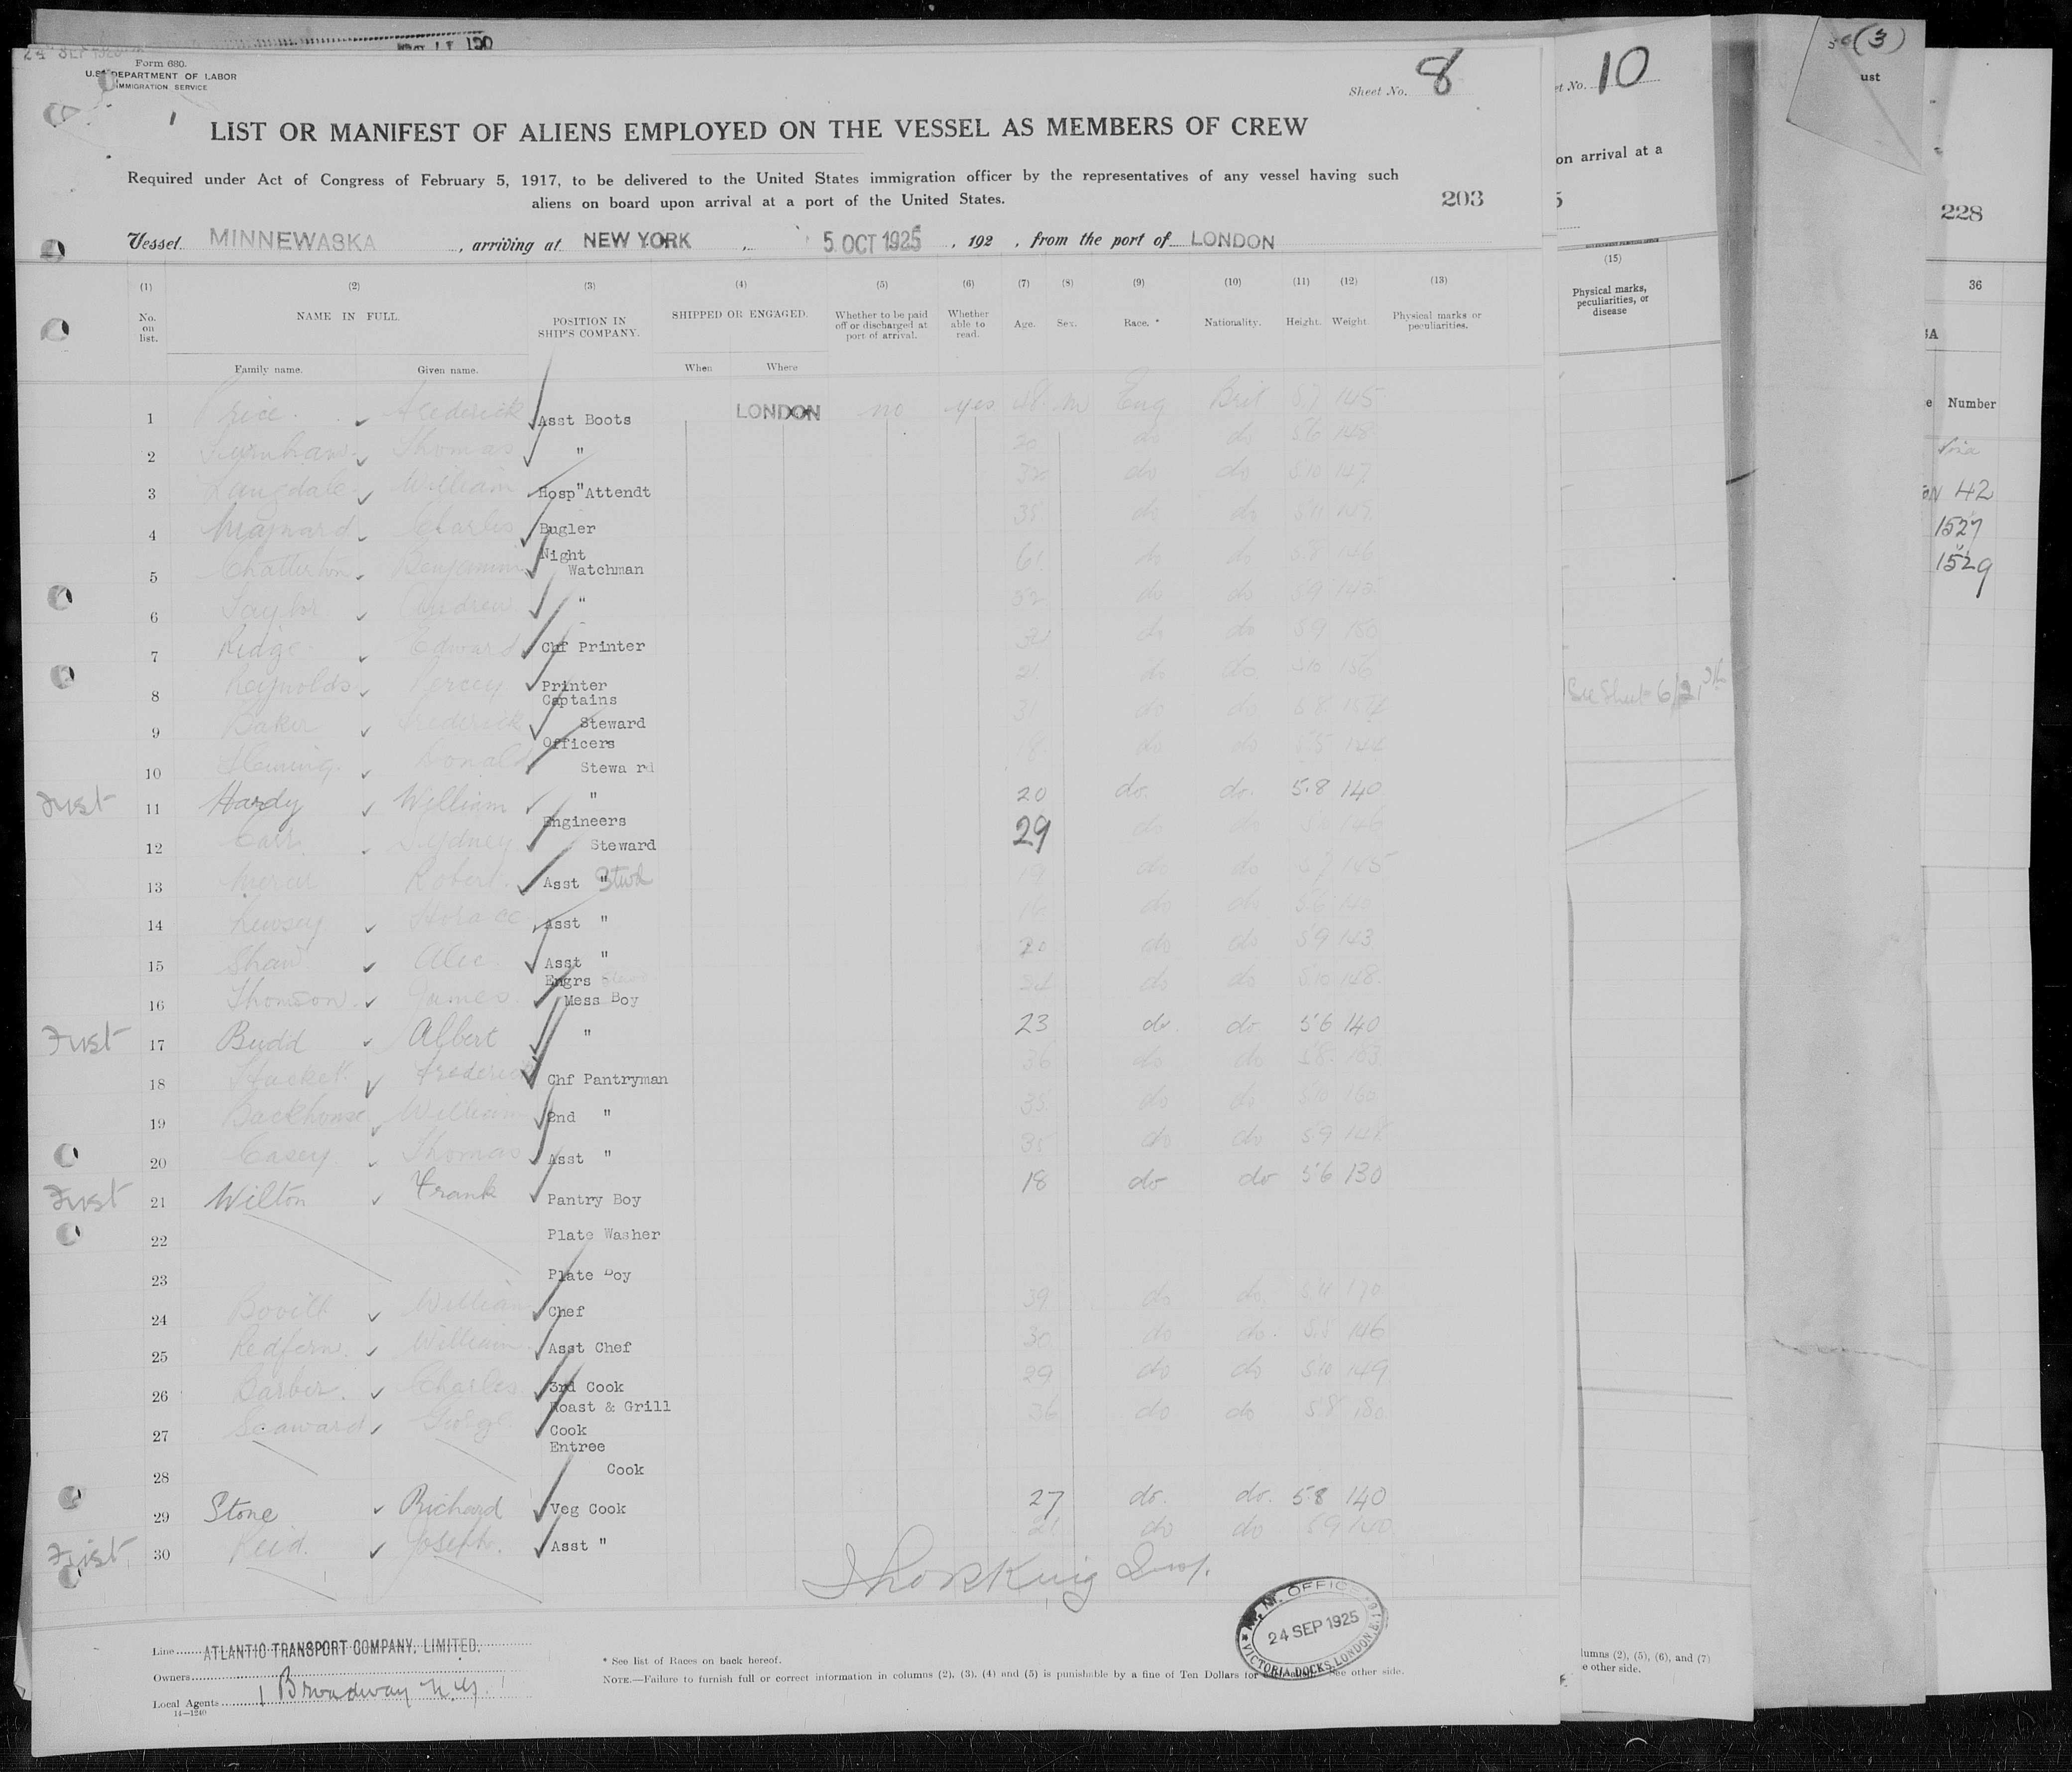 Form 680.
U.S. DEPARTMENT OF LABOR
IMMIGRATION SERVICE
Sheet No. 8
LIST OR MANIFEST OF ALIENS EMPLOYED ON THE VESSEL AS MEMBERS OF CREW
Required under Act of Congress of February 5, 1917, to be delivered to the United States immigration officer by the representatives of any vessel having such
aliens on board upon arrival at a port of the United States.
203
Vessel MINNEWASKA, arriving at NEW YORK, 5 OCT 1925, 192 , from the port of LONDON
(1) (2) (3) (4) (5) (6) (7) (8) (9) (10) (11) (12) (13)
No. on list. NAME IN FULL. POSITION IN SHIP'S COMPANY. SHIPPED OR ENGAGED. Whether to be paid off or discharged at port of arrival. Whether able to read. Age. Sex. Race. * Nationality. Height. Weight. Physical marks or peculiarities.
Family name. Given name. When Where
1 Price Frederick Asst Boots LONDON no yes M Eng Brit 5.7 145
2 Thomas " 20 do do 5.6 148
3 Langdale William Hosp "Attendt 32 do do 5.10 147
4 Maynard Charles Bugler 35 do do
5 Chatterton Benjamin Night Watchman 61 do do 5.8 146
6 Taylor Andrew " 52 do do 5.9 145
7 Ridge Edward Chf Printer do do 5.9 150
8 Reynolds Percey Printer 21 do do 5.10 156
9 Baker Frederick Captains Steward 31 do do 5.8
10 Fleming Donald Officers Steward do do
11 Hardy William " 20 do. do. 5.8 140
First
12 Carr Sydney Engineers Steward 29 do do 146
13 Mercer Robert Asst " Stwd 19 do do 145
14 Horace Asst " 16 do do 5.6 140
15 Shaw Alec Asst " 20 do do 5.9 143
16 Thomson James Engrs Mess Boy do do 5.10 148
First
17 Budd Albert " 23 do. do. 5.6 140
18 Hackett Frederick Chf Pantryman 36 do do 5.8 163
19 Backhouse William 2nd " 35 do do 5.10 160
20 Casey Thomas Asst " 35 do do 5.9 148
First
21 Wilton Frank Pantry Boy 18 do do 5.6 130
22 Plate Washer
23 Plate Boy
24 Bovill William Chef 39 do do 5.11 170
25 Redfern William Asst Chef 30 do do. 146
26 Barber Charles 3rd Cook 29 do do 5.10 149
27 Seaward George Roast & Grill Cook 36 do do 5.8 180
28 Entree Cook
29 Stone Richard Veg Cook 27 do. do. 5.8 140
First
30 Reid Joseph Asst " 21 do do 5.9 140
M. M. OFFICE
24 SEP 1925
VICTORIA DOCKS, LONDON, E.16
Line ATLANTIC TRANSPORT COMPANY, LIMITED.
Owners
Local Agents 1 Broadway N.Y.
14—1240
* See list of Races on back hereof.
NOTE.—Failure to furnish full or correct information in columns (2), (3), (4) and (5) is punishable by a fine of Ten Dollars for See other side.
No. 10
on arrival at a
5
(15)
Physical marks, peculiarities, or disease
See Sheet 6/21
columns (2), (5), (6), and (7)
other side.
(3)
ust
228
36
Number
42
1527
1529